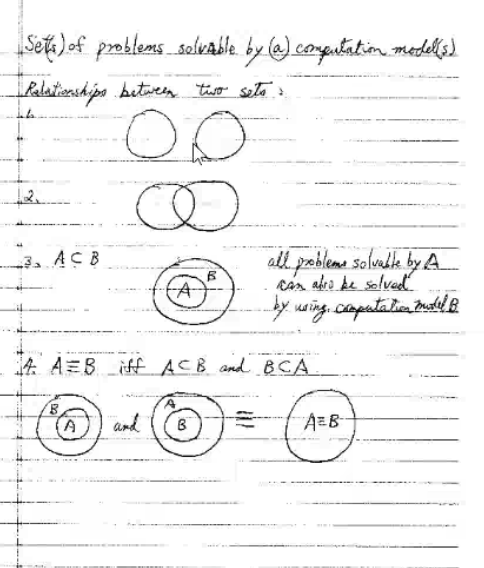 Set(s) of problems solvable by (a) computation model(s)
Relationships between two sets :
1.
2.
3. A ⊂ B
B
A
all problems solvable by A
can also be solved
by using computation model B
4. A ≡ B iff A ⊂ B and B ⊂ A
B A and A B ≡ A≡B